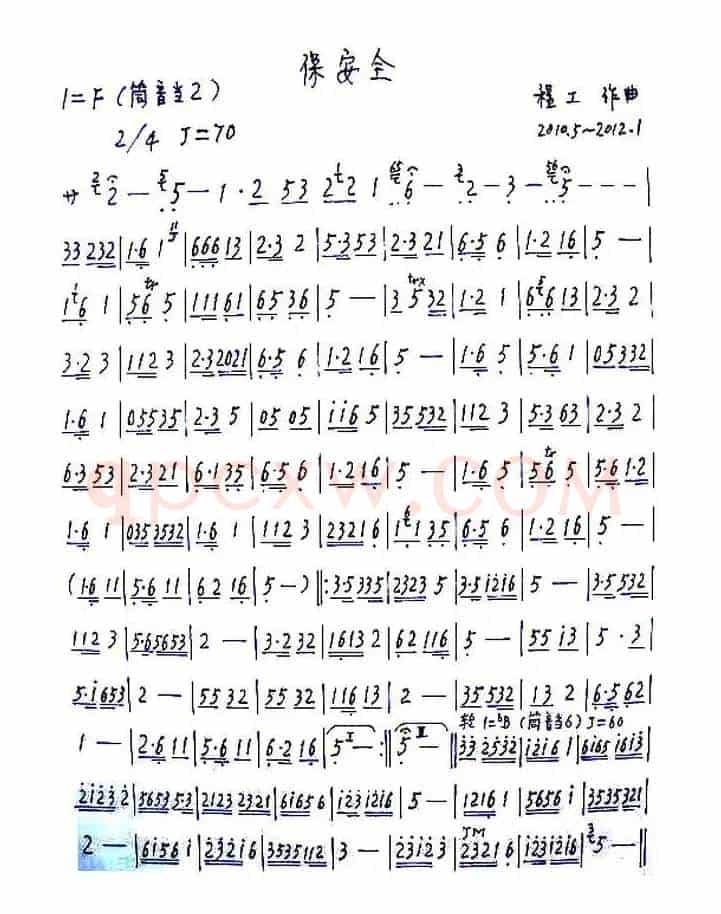 保安全
1=F (筒音当2)
程工 作曲
2/4 J=70
2010.5~2012.1
サ 2 — 5 — 1 · 2 53 2 2 1 6 — 2 — 3 — 5 — — — |
33 232 | 1·6 1 | 666 13 | 2·3 2 | 5·3 53 | 2·3 21 | 6·5 6 | 1·2 16 | 5 — |
1 6 1 | 56 5 | 11161 | 6536 | 5 — | 3 532 | 1·2 1 | 6613 | 2·3 2 |
3·2 3 | 112 3 | 2·32021 | 6·5 6 | 1·2 16 | 5 — | 1·6 5 | 5·6 1 | 05332 |
1·6 1 | 03535 | 2·3 5 | 05 05 | ii6 5 | 35532 | 112 3 | 5·3 63 | 2·3 2 |
6·3 53 | 2·3 21 | 6·135 | 6·5 6 | 1·2 16 | 5 — | 1·6 5 | 56 5 | 5·6 1·2 |
qpcxw.COM
1·6 1 | 0353532 | 1·6 1 | 112 3 | 23216 | 1 135 | 6·5 6 | 1·2 16 | 5 — |
(1·6 11 | 5·6 11 | 62 16 | 5 —) ‖: 3·5335 | 2323 5 | 3·5 i2i6 | 5 — | 3·5532 |
112 3 | 5·65653 | 2 — | 3·2 32 | 1613 2 | 62 116 | 5 — | 55 i3 | 5 · 3 |
5·i653 | 2 — | 55 32 | 55 32 | 11613 | 2 — | 35532 | 13 2 | 6·562 |
轮 1=bB (筒音当6) J=60
1 — | 2·6 11 | 5·6 11 | 6·2 16 | 5 I — :‖ 5 II — ‖ 33 2532 | i2i6 1 | 6i65 i6i3 |
2i23 2 | 3653 5·3 | 2123 2321 | 6i65 6 | i23i2i6 | 5 — | 12161 | 5656 i | 3535321 |
2 — | 6i56 i | 232i6 | 3535112 | 3 — | 23i23 | JM 23216 | i23i2i6 | 5 — ‖